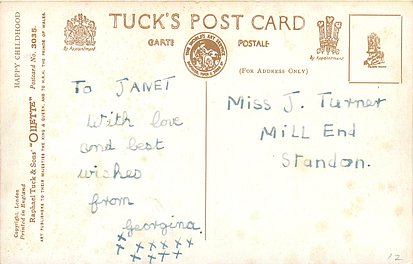 TUCK'S POST CARD
CARTE POSTALE
(FOR ADDRESS ONLY)
By Appointment
By Appointment
HAPPY CHILDHOOD
Postcard No. 3035.
ART PUBLISHERS TO THEIR MAJESTIES THE KING & QUEEN, AND TO H.R.H. THE PRINCE OF WALES.
Raphael Tuck & Sons' "OILETTE"
Printed in England
Copyright. London
TO JANET
With love
and best
wishes
from
Georgina.
x x x x x x x
x x x x x
Miss J. Turner
MILL End
Standon.
12